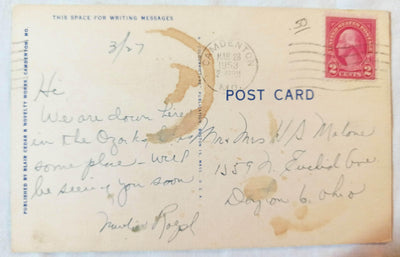 THIS SPACE FOR WRITING MESSAGES
3/27
Hi
We are down here
in the Ozarks
some place. Will
be seeing you soon
CAMDENTON
1953
MO.
UNITED STATES POSTAGE
2 CENTS 2
POST CARD
Mr & Mrs H B Malone
1359 N. Euclid Ave
Dayton 6, Ohio
PUBLISHED BY BLAIR CEDAR & NOVELTY WORKS, CAMDENTON, MO.